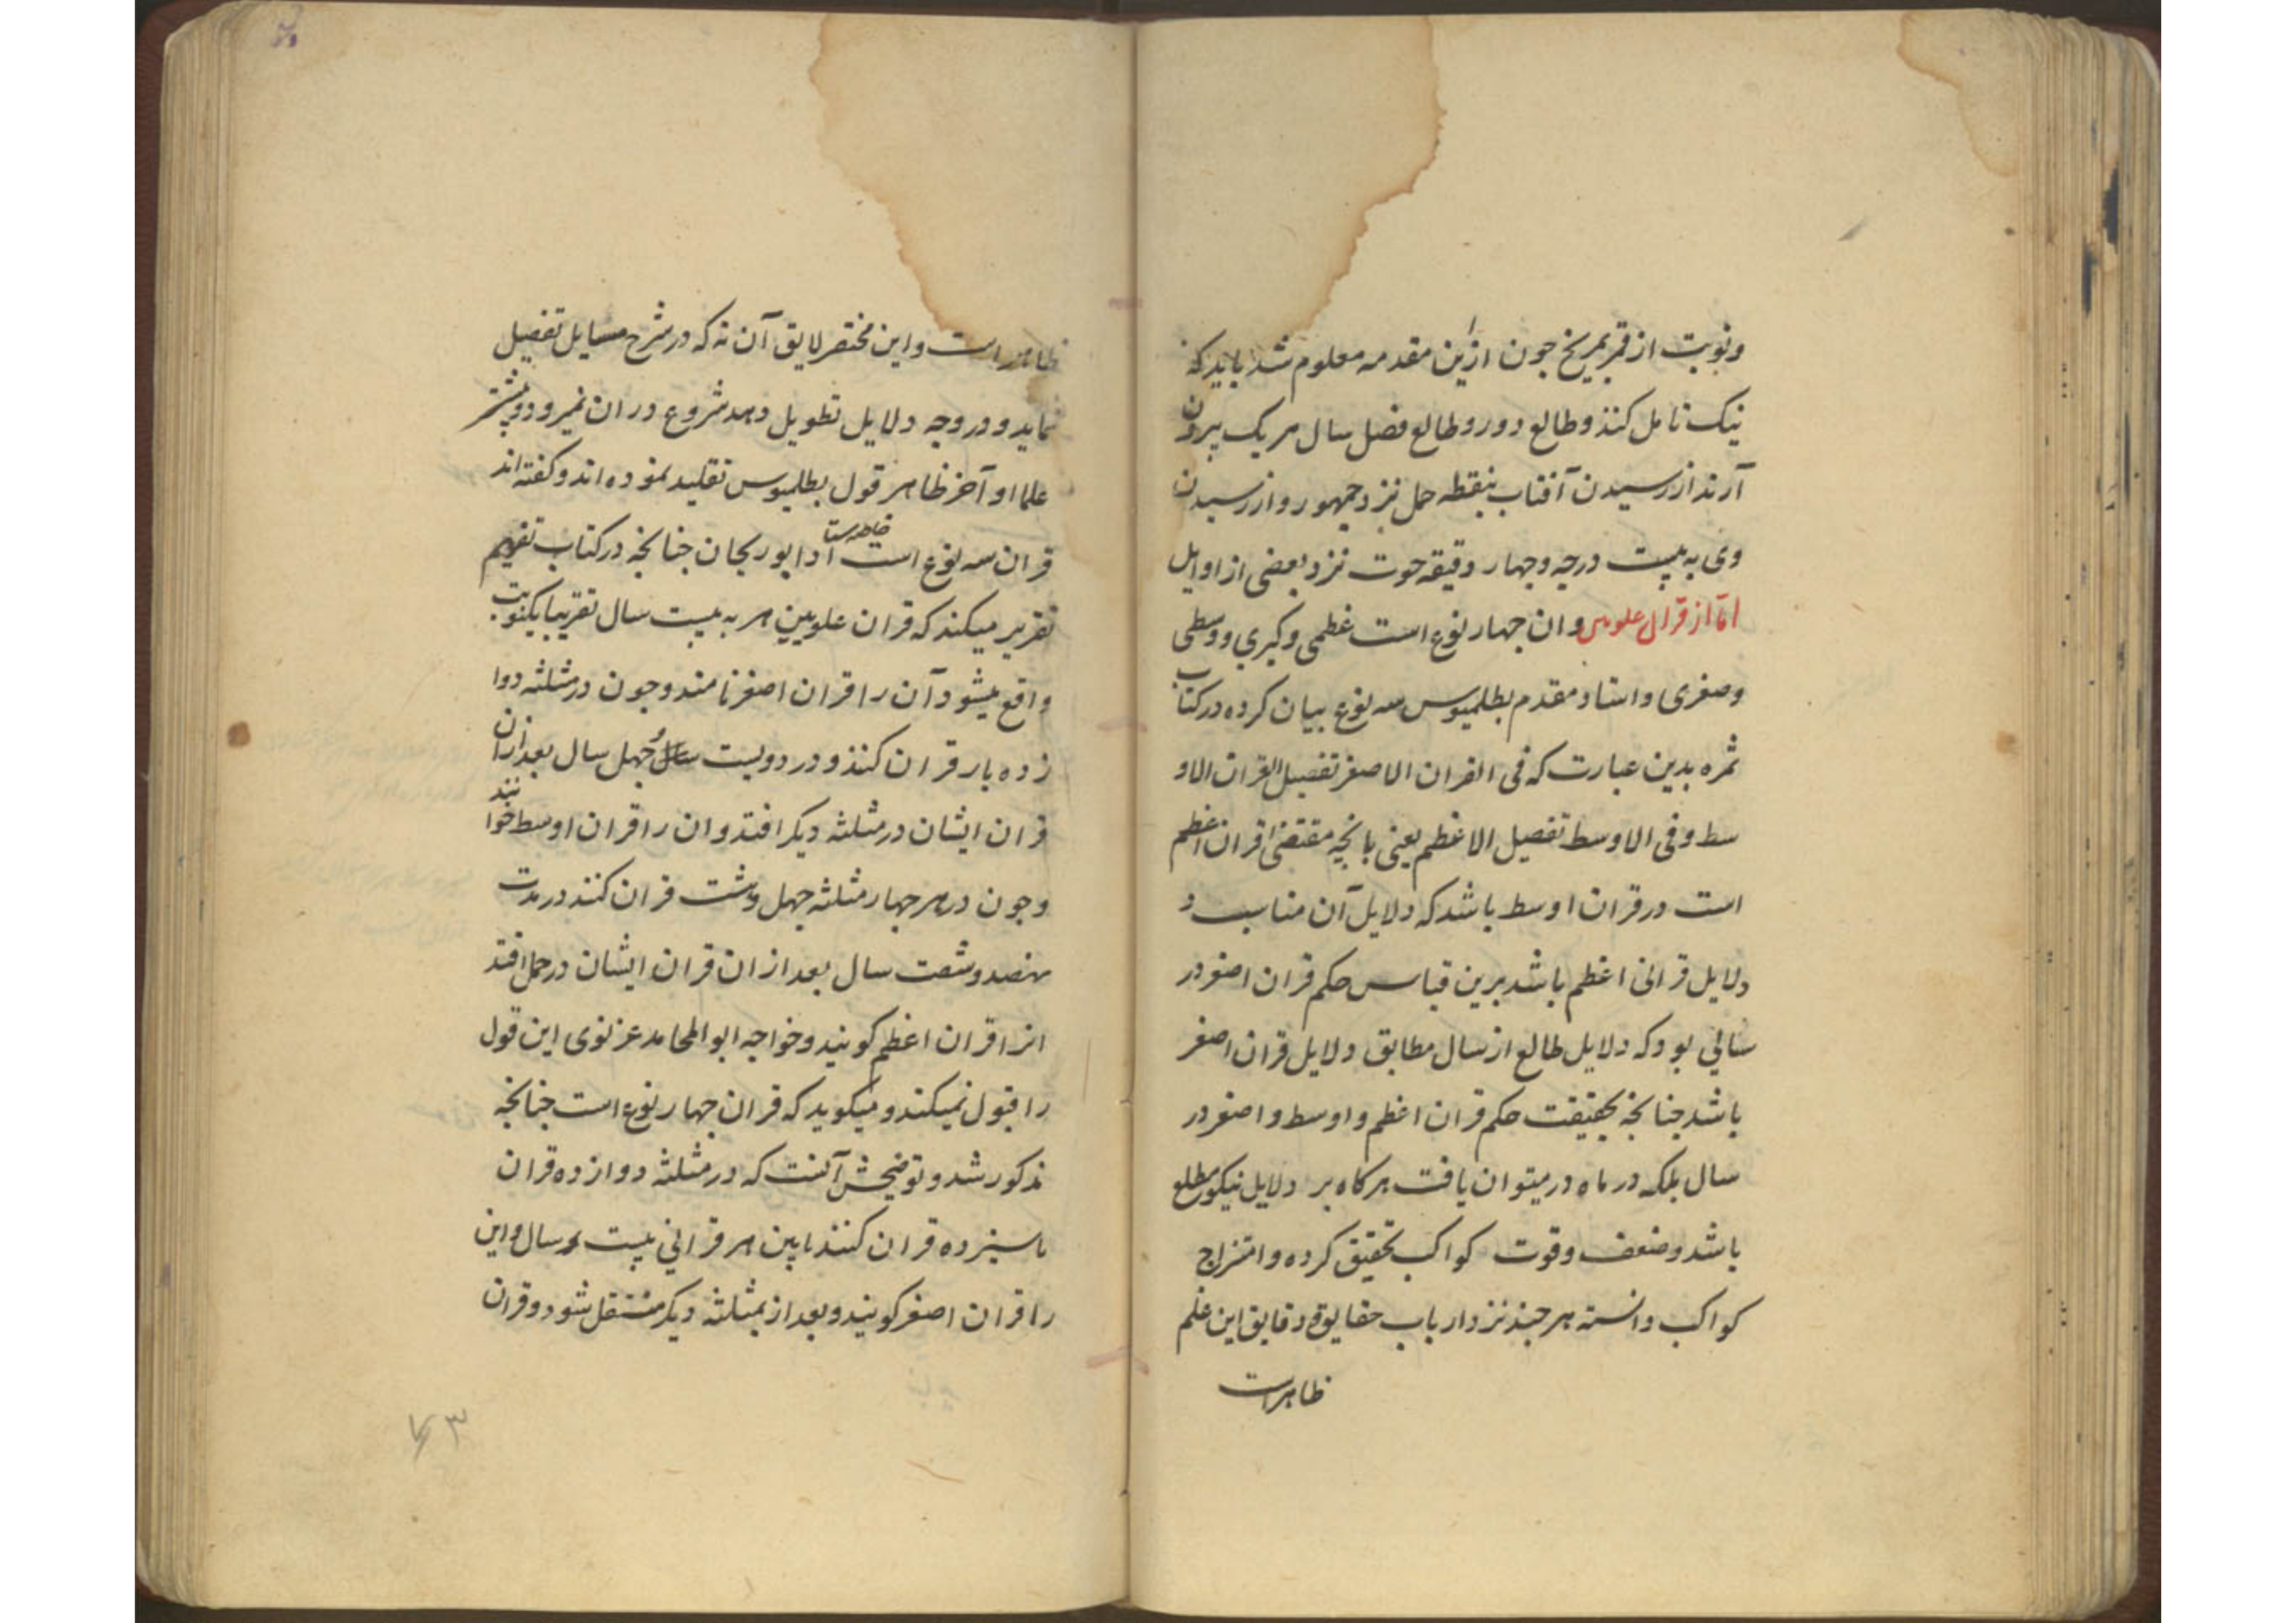 ونوبت از قمر بمریخ جون ازین مقدمه معلوم شد باید که
نیک تامل کنند وطالع دور وطالع فصل سال هر یک بیرون
آرند از رسیدن آفتاب بنقطه حمل نزد جمهور واز رسیدن
وی به بیست درجه وجهار دقیقه حوت نزد بعضی از اوایل
اما از قران علویین وان جهار نوع است عظمی وکبری ووسطی
وصغری واستاد مقدم بطلمیوس سه نوع بیان کرده در کتاب
ثمره بدین عبارت که فی القران الاصغر تفصیل القران الاو
سط وفی الاوسط تفصیل الاعظم یعنی بانچه مقتضی قران اعظم
است در قران اوسط باشد که دلایل آن مناسب و
دلایل قرانی اعظم باشد برین قیاس حکم قران اصغر در
سالی بود که دلایل طالع از سال مطابق دلایل قران اصغر
باشد جنانجه بحقیقت حکم قران اعظم واوسط واصغر در
سال بلکه در ماه در میتوان یافت هرکاه بر دلایل نیکو مطلع
باشد وضعف وقوت کواکب تحقیق کرده وامتزاج
کواکب دانسته هر جند نزد ارباب حقایق ودقایق این علم
ظاهراست
ظاهر است واین مختصر لایق آن نه که در شرح مسایل تفصیل
نماید ودر وجه دلایل تطویل دهد شروع دران نمیرود وبیشتر
علما او آخر ظاهر قول بطلمیوس تقلید نموده اند وکفته اند
قران سه نوع است خاصه ستا ابوریحان جنانجه در کتاب تفهیم
تقریر میکند که قران علویین هر به بیست سال تقریبا یکنوبت
واقع میشود آن را قران اصغر نامند وجون در مثلثه دوا
زده بار قران کنند ودر دویست وجهل سال بعد ازان
قران ایشان در مثلثه دیکر افتد وان را قران اوسط خوانند
وجون در هر جهار مثلثه جهل وهشت قران کنند در مدت
نهصد وشصت سال بعد از ان قران ایشان در حمل افتد
انرا قران اعظم کویند وخواجه ابوالمحامد غزنوی این قول
را قبول نمیکند ومیکوید که قران جهار نوع است جنانجه
مذکور شد وتوضیحش آنست که در مثلثه دوازده قران
یا سیزده قران کنند مابین هر قرانی بیست سال واین
را قران اصغر کویند وبعد از بمثلثه دیکر منتقل شود وقران